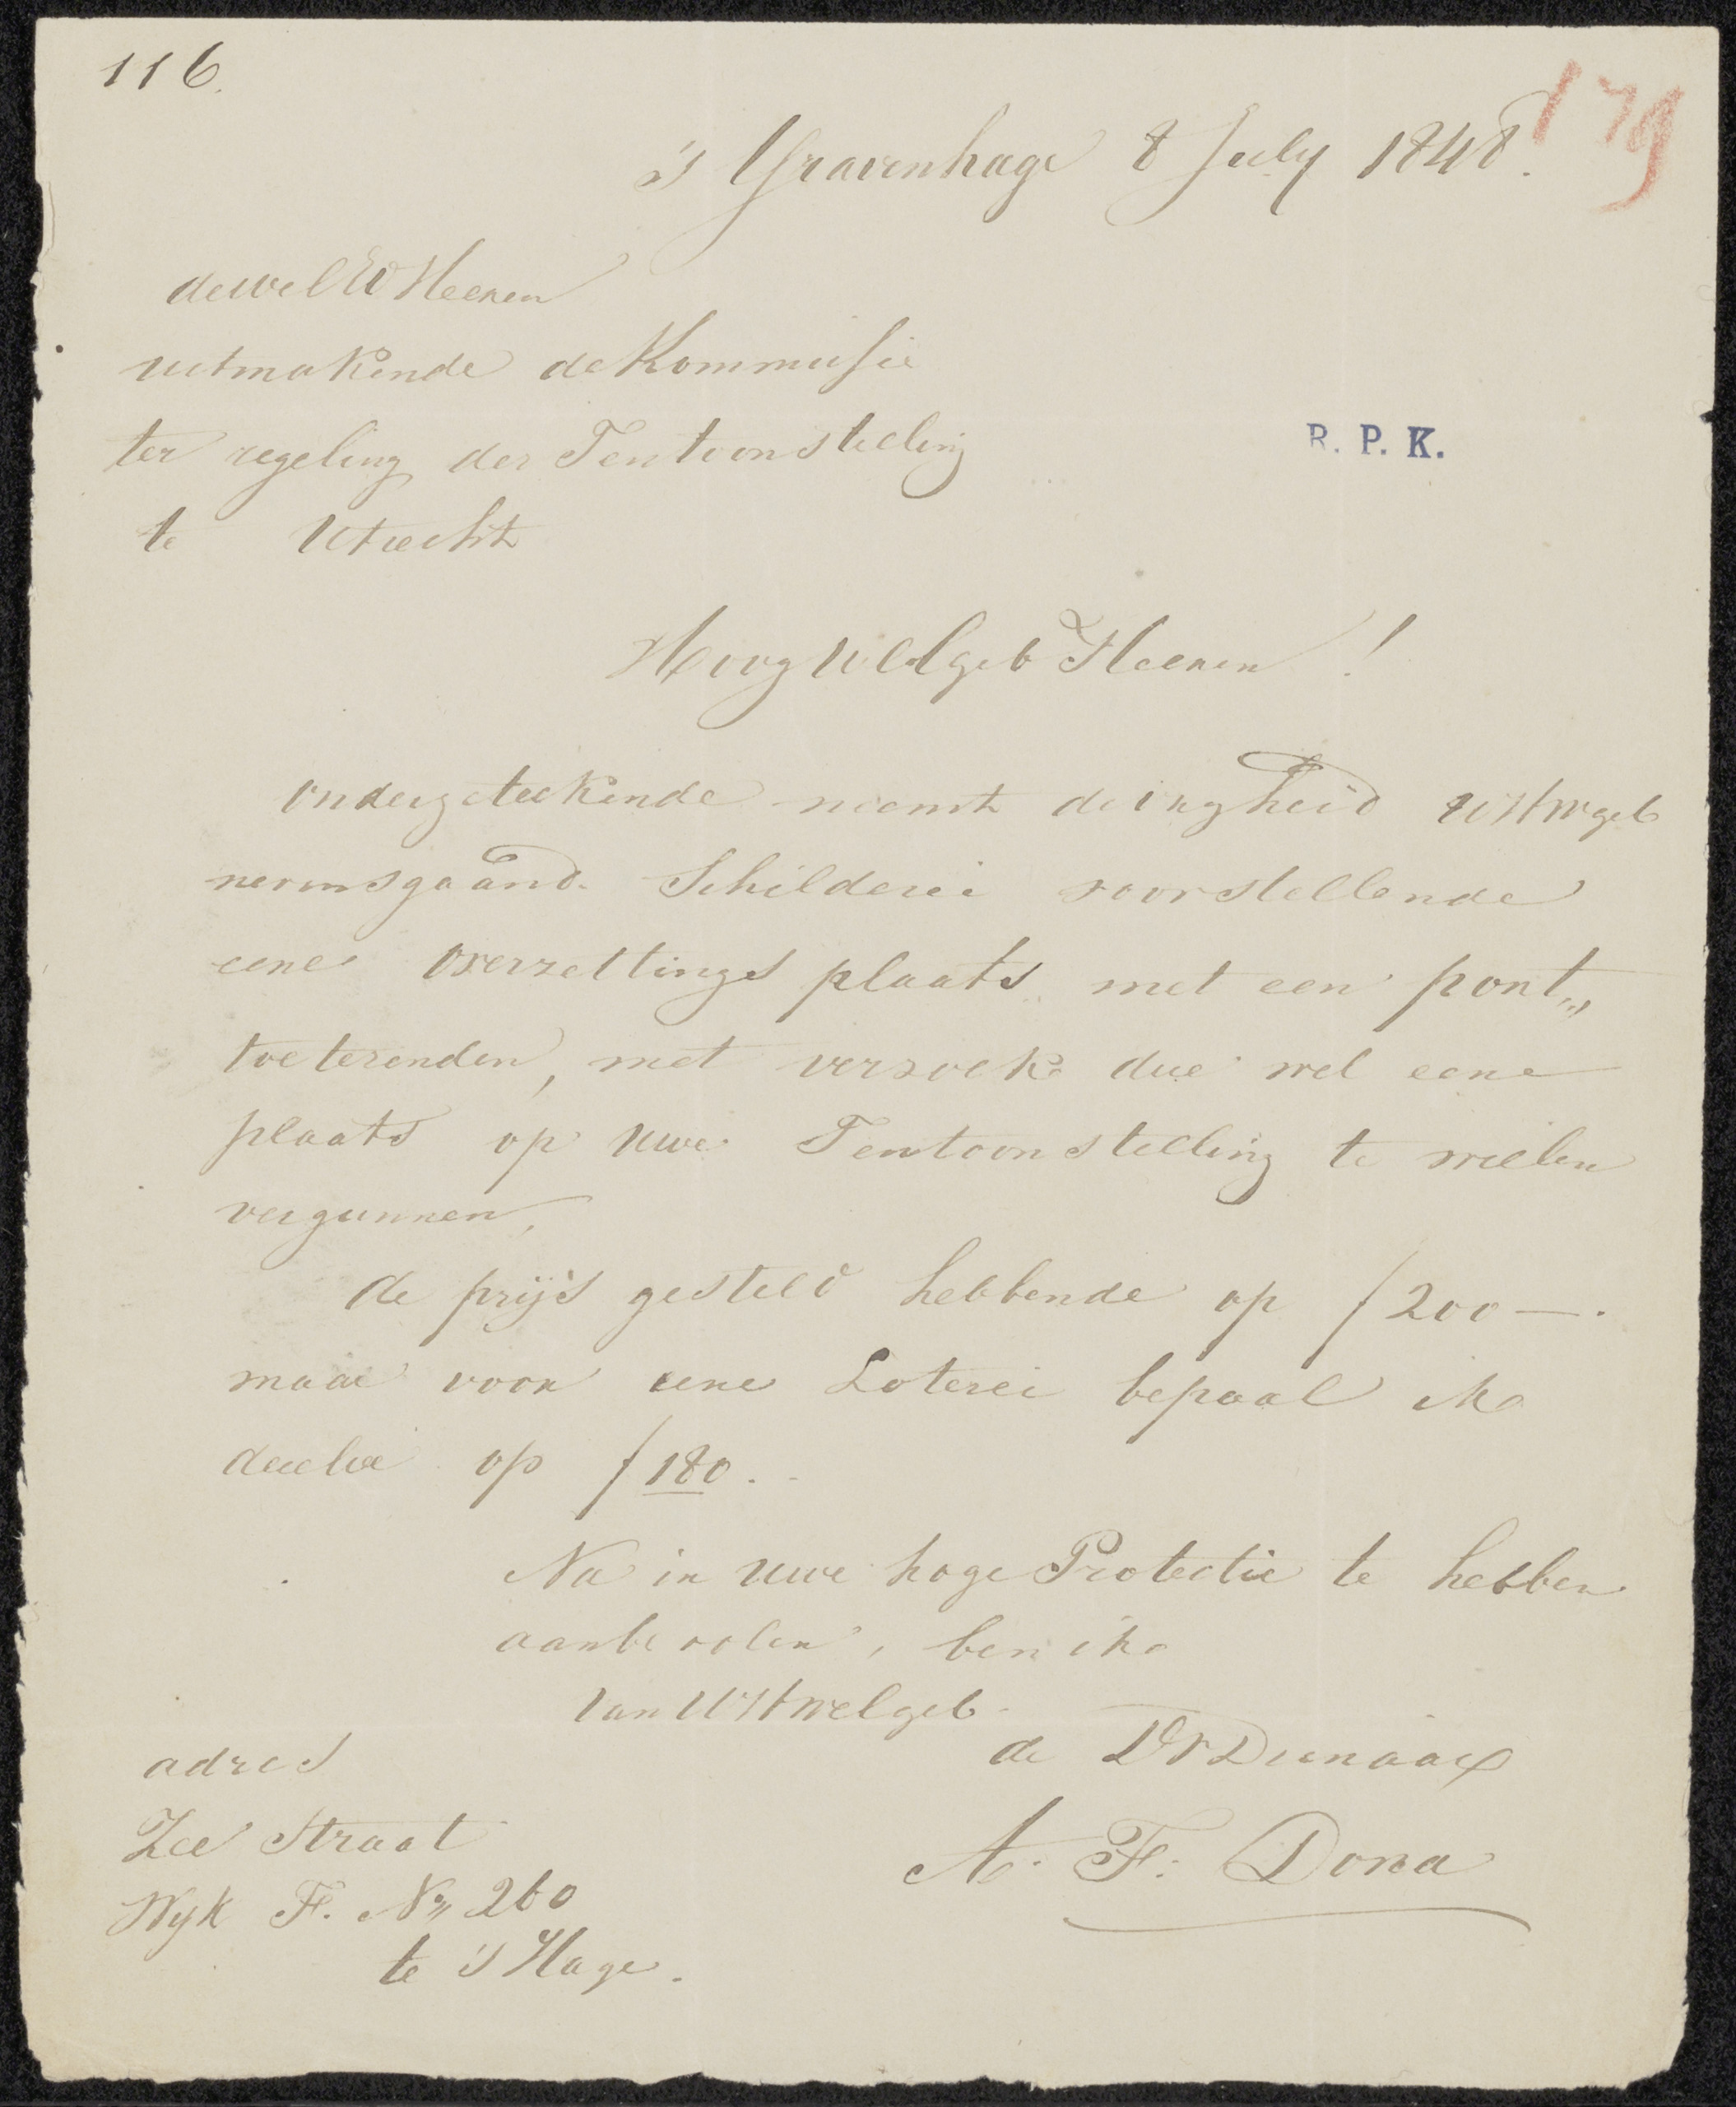 116.
179
's Gravenhage 8 July 1848.
de wel E Heeren
uitmakende de Kommissie
ter regeling der Tentoonstelling
R. P. K.
te Utrecht
Hoog WelEdgeb Heeren !
Ondergeteekende neemt de vryheid UHWgeb
nevensgaand Schilderei voorstellende
eene overzettings plaats met een pont,,
toetezenden, met verzoek die wel eene
plaats op uwe Tentoonstelling te willen
vergunnen,
de prijs gesteld hebbende op ƒ 200 —.
maar voor eene Loterei bepaal ik
dezelve op ƒ 180.
Na in uwe hoge Protectie te hebben
aanbevolen, ben ik
Van UHWelgeb.
de DWDienaar
A. F. Dona
adres
Zee Straat
Wyk F. No,, 260
te 's Hage.